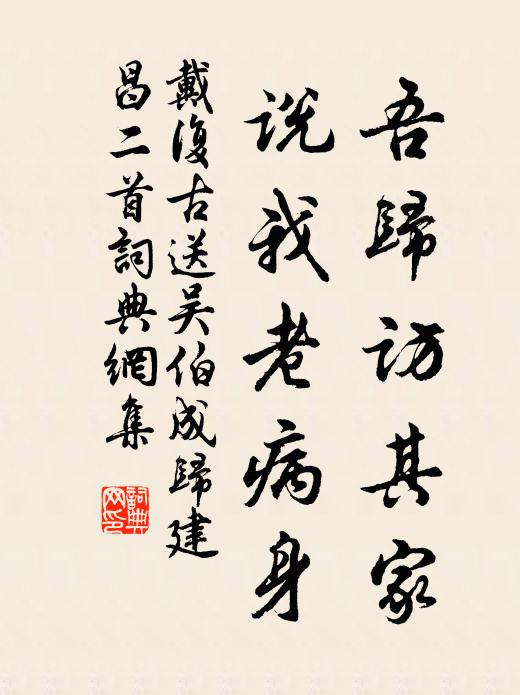 吾歸访其家
说我老病身
戴復古送吴伯成歸建
昌二首詞典網集
詞典網印